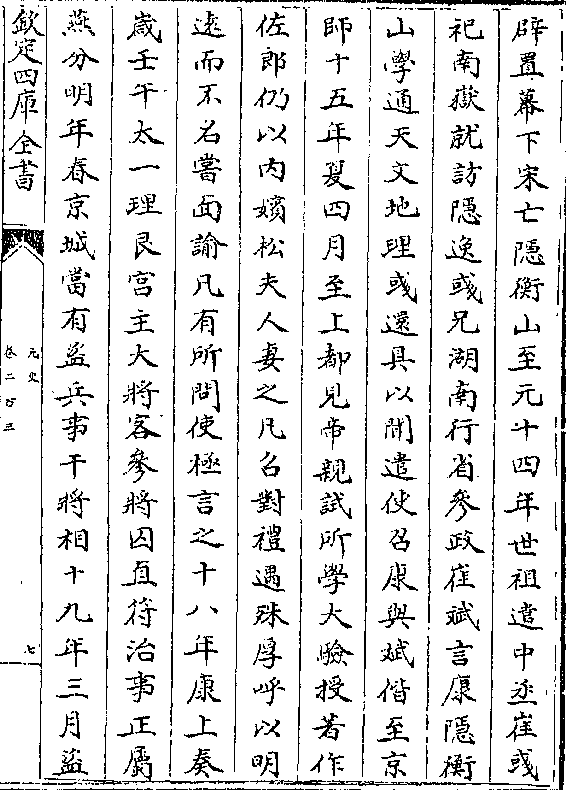 辟置幕下宋亡隱衡山至元十四年世祖遣中丞崔彧
祀南嶽就訪隱逸彧兄湖南行省參政崔斌言康隱衡
山學通天文地理彧還具以聞遣使召康與斌偕至京
師十五年夏四月至上都見帝親試所學大驗授著作
佐郎仍以内嬪松夫人妻之凡召對禮遇殊厚呼以明
逺而不名嘗面諭凡有所問使極言之十八年康上奏
歲壬午太一理艮宫主大將客參將囚直符治事正屬
燕分明年春京城當有盜兵事干將相十九年三月盜
欽定四庫全書
元史
卷二百三
七